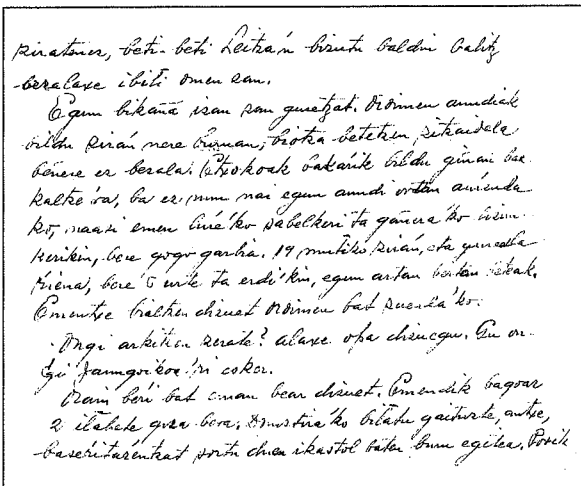 ziratenez, beti-beti Leitza'n bizitu baldin balitz
bezelaxe ibili omen zan.
Egun bikaña izan zan guretzat. Oroimen aundiak
bildu ziran nere buruan, biotza betetzen zitzaidala
beñere ez bezala. Etxokoak bakarik bildu giñan baz-
kaltze'ra, ba ez nun nai egun aundi ortan
ko, naasi emen sabelkeri ta gañera'ko
kerikin, bere gogo garbia. 19 mutiko ziran, eta gurea
bere 6 urte ta erdi'kin, egun artan bertan beteak.
Ementxe bialtzen dizuet oroimen bat zuenla'ko.
Ongi arkitzen zerate? alaxe opa dizuegu. Gu on-
gi Jaungoikoa'ri esker.
Orain beri bat eman bear dizuet. Emendik bagoaz
2 ilabete gera bera. Donostira'ko bilatu gaituzte, antxe,
baseritarentzat sortu duen ikastol baten buru egitea. Pozik